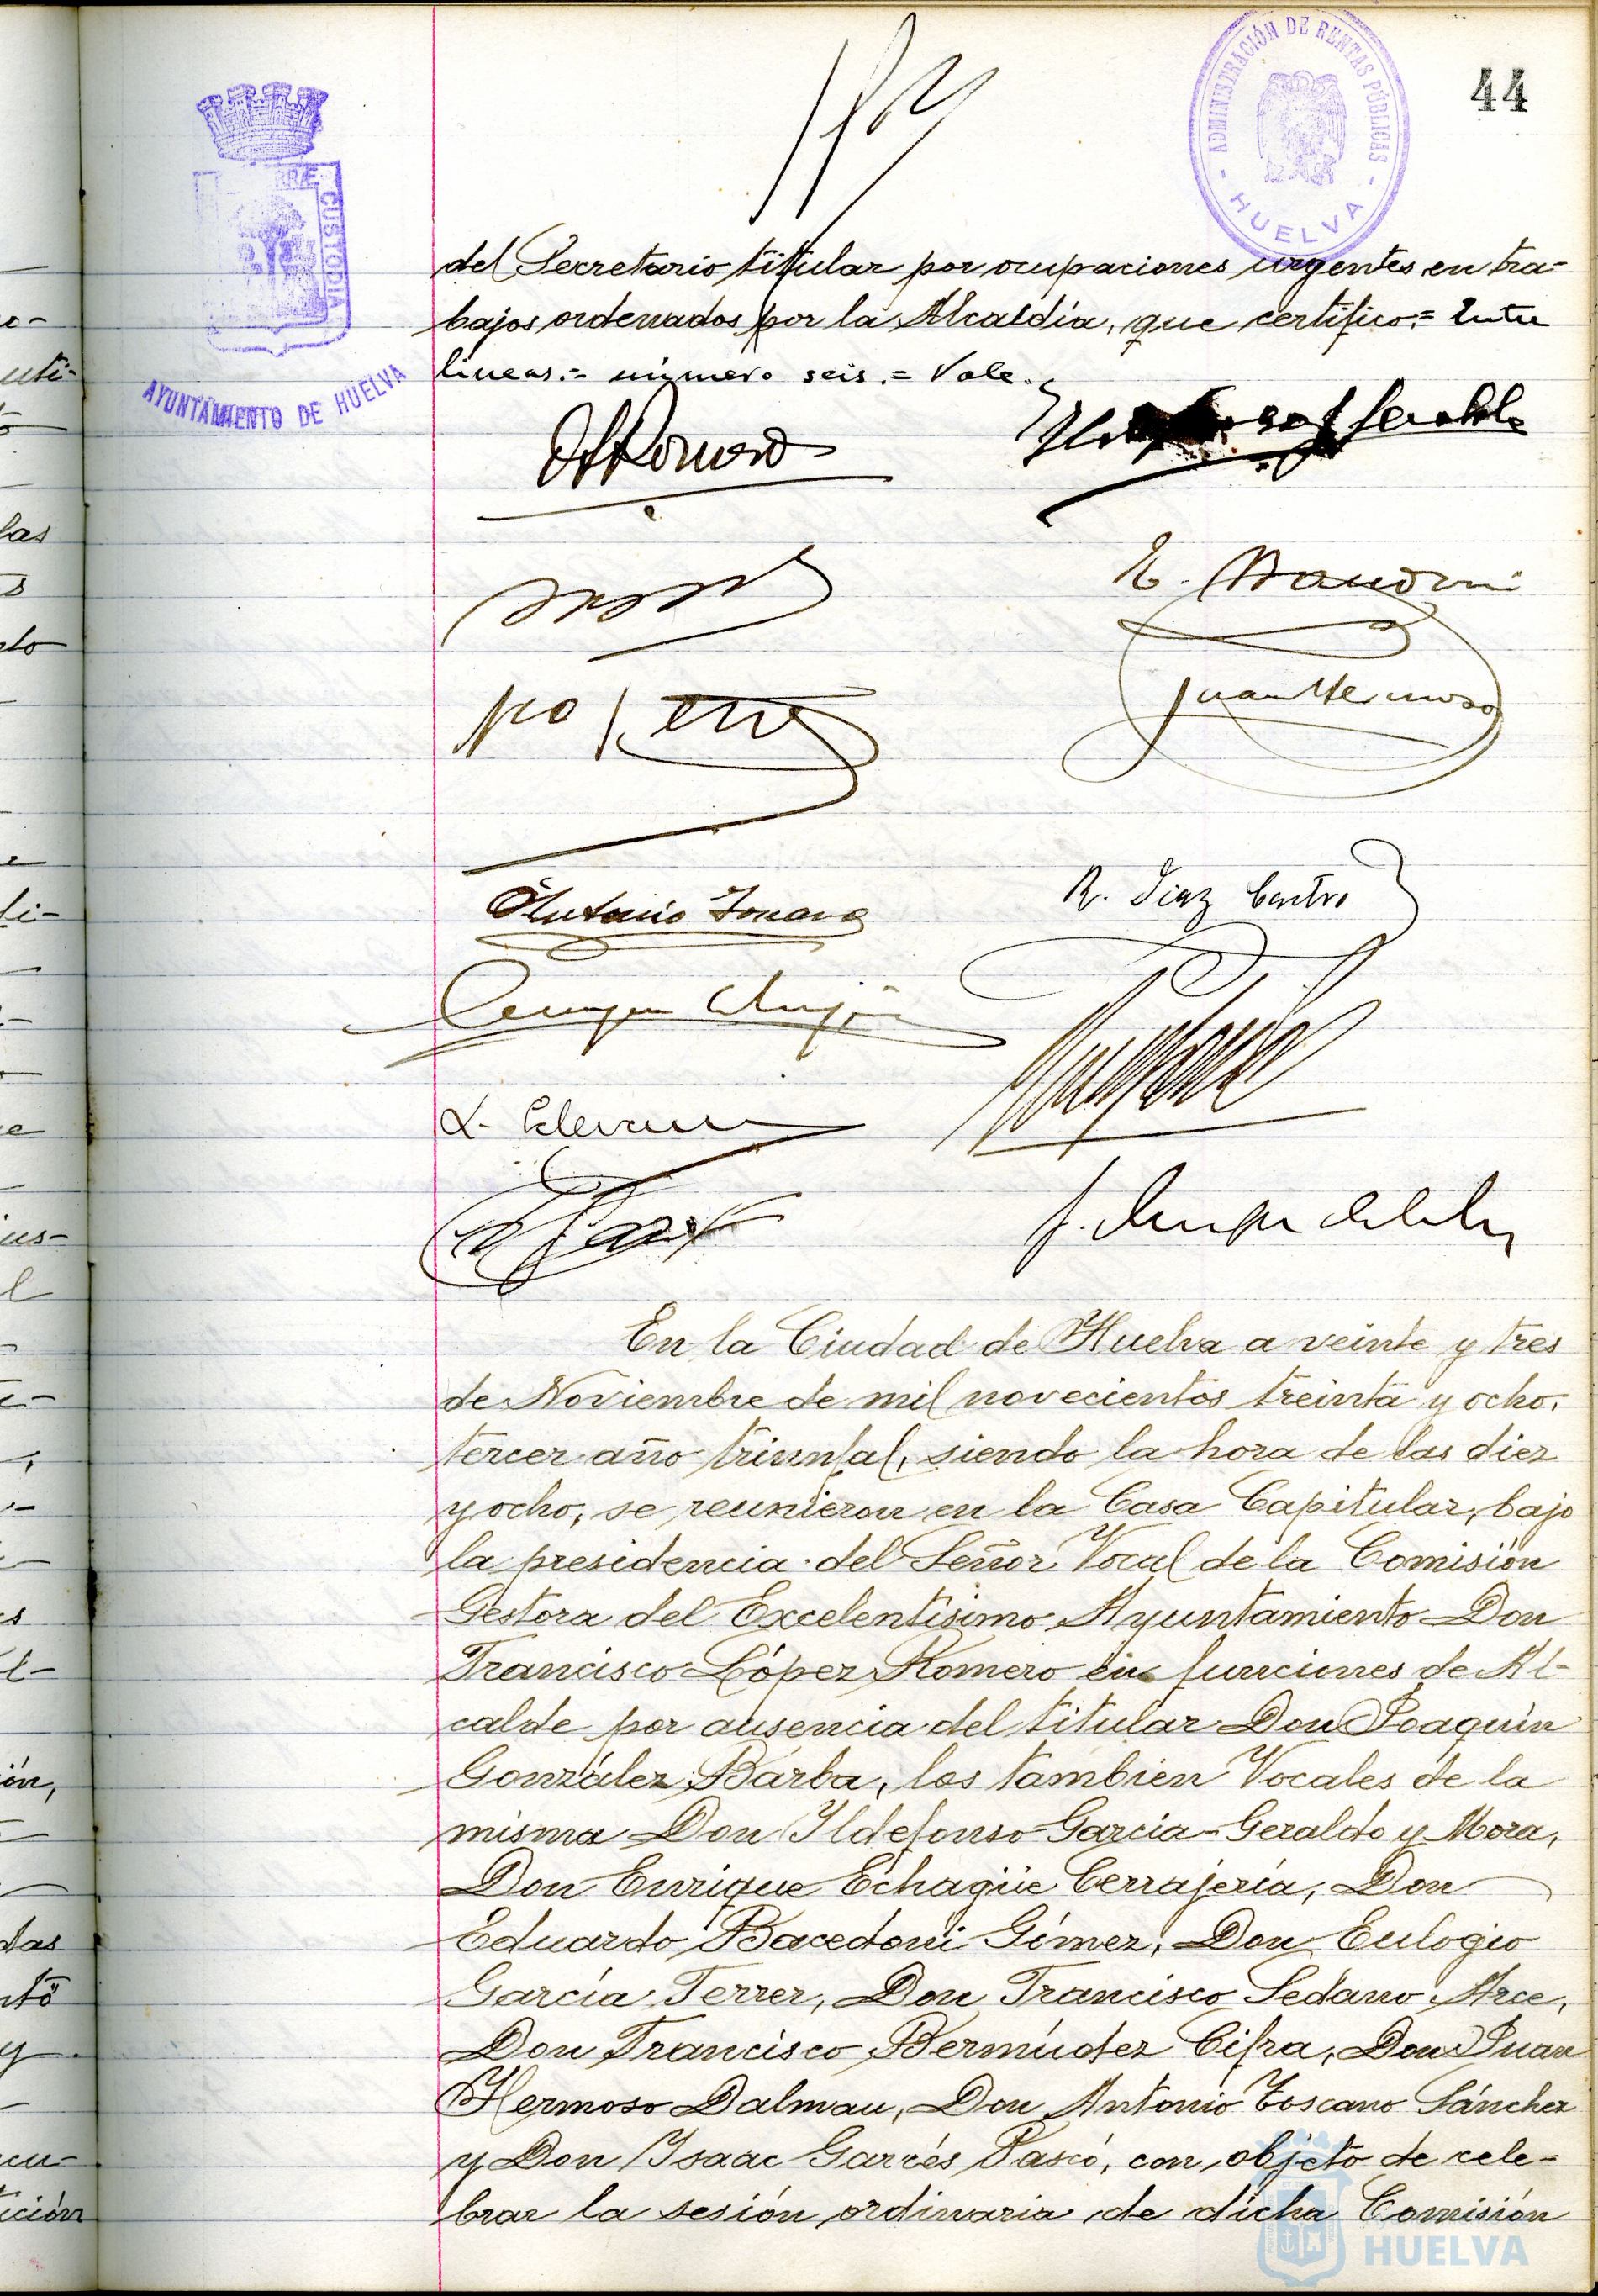 44
ADMINISTRACIÓN DE RENTAS PÚBLICAS
- HUELVA -
CUSTODIA
AYUNTAMIENTO DE HUELVA
del Secretario titular por ocupaciones urgentes en tra-
bajos ordenados por la Alcaldía, que certifico.= Entre
lineas.= número seis.= Vale.
Juan Hermoso
R. Diaz Castro
En la Ciudad de Huelva a veinte y tres
de Noviembre de mil novecientos treinta y ocho,
tercer año triunfal, siendo la hora de las diez
y ocho, se reunieron en la Casa Capitular, bajo
la presidencia del Señor Vocal de la Comisión
Gestora del Excelentísimo Ayuntamiento Don
Francisco López Romero en funciones de Al-
calde por ausencia del titular Don Joaquín
González Barba, los tambien Vocales de la
misma Don Ildefonso García-Geraldo y Mora,
Don Enrique Echagüe Cerrajería, Don
Eduardo Bacedoni Gómez, Don Eulogio
García Ferrer, Don Francisco Sedano Arce,
Don Francisco Bermúdez Cifra, Don Juan
Hermoso Dalmau, Don Antonio Toscano Sánchez
y Don Isaac Garcés Pascó, con objeto de cele-
brar la sesión ordinaria de dicha Comisión
HUELVA